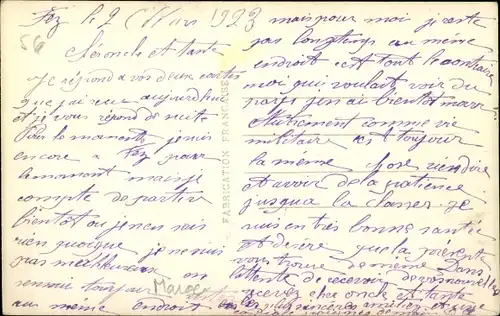 Fez le 2 Mars 1923
56
Cher oncle et tante
Je répond a vos deux cartes
que j'ai reçu aujourd'hui
et je vous répond de suite
Pour le moment je suis
encore a Fez pour
le moment mais je
compte de partir
bientôt ou j'en sais
rien quoique je ne suis
pas malheureux on
restant toujours
Maroc
au même endroit
mais pour moi je reste
pas longtemps au même
endroit et tout le contraire
moi qui voulait voir du
pays j'en ai bientôt marre
Autrement comme vie
militaire est toujour
la même chose rien dire
et avoir de la patience
jusqua la classe. je
suis en très bonne santé
et désire que la présente
vous trouve de même Dans
l'attente de recevoir de vos nouvelles
recevez cher oncle et tante
FABRICATION FRANÇAISE